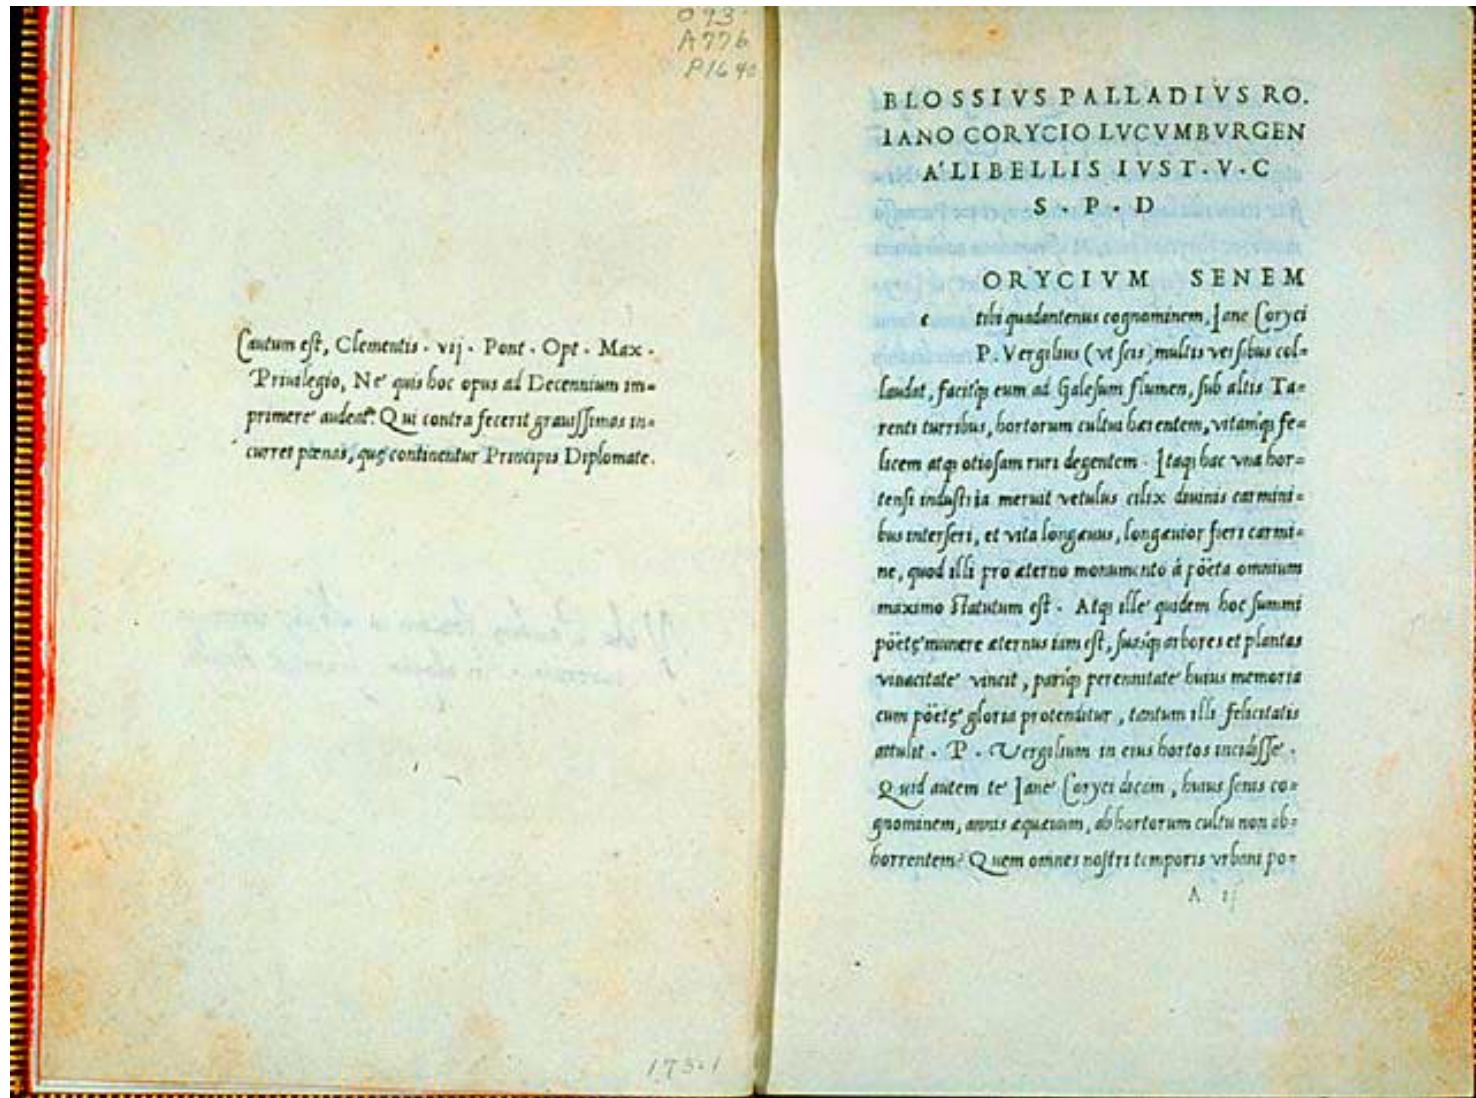 093
A776
P1640
Cautum est, Clementis . vij . Pont . Opt . Max .
Priuilegio, Ne quis hoc opus ad Decennium im-
primere audeat. Qui contra fecerit grauissimas in-
curret pœnas, quę continentur Principis Diplomate.
173.1
BLOSSIVS PALLADIVS RO.
IANO CORYCIO LVCVMBVRGEN
A' LIBELLIS IVST . V . C
S . P . D
ORYCIVM SENEM
c tibi quadantenus cognominem, Iane Coryci
P. Vergilius (vt scis) multis versibus col-
laudat, facitq; eum ad Galesum flumen, sub altis Ta-
renti turribus, hortorum cultui hærentem, vitamq; fe-
licem atq; otiosam ruri degentem . Itaq; hac vna hor-
tensi industria meruit vetulus cilix diuinis carmini-
bus interseri, et vita longæuus, longæuior fieri carmi-
ne, quod illi pro æterno monumento á pöeta omnium
maximo statutum est . Atq; ille quidem hoc summi
pöetę munere æternus iam est, suasq; arbores et plantas
viuacitate vincit, pariq; perennitate huius memoria
cum pöetę gloria protenditur, tantum illi felicitatis
attulit . P . Vergilium in eius hortos incidisse .
Quid autem te Iane Coryci dicam, huius senis co-
gnominem, annis æquæuum, ab hortorum cultu non ab-
horrentem? Quem omnes nostri temporis vrbani po-
A ij